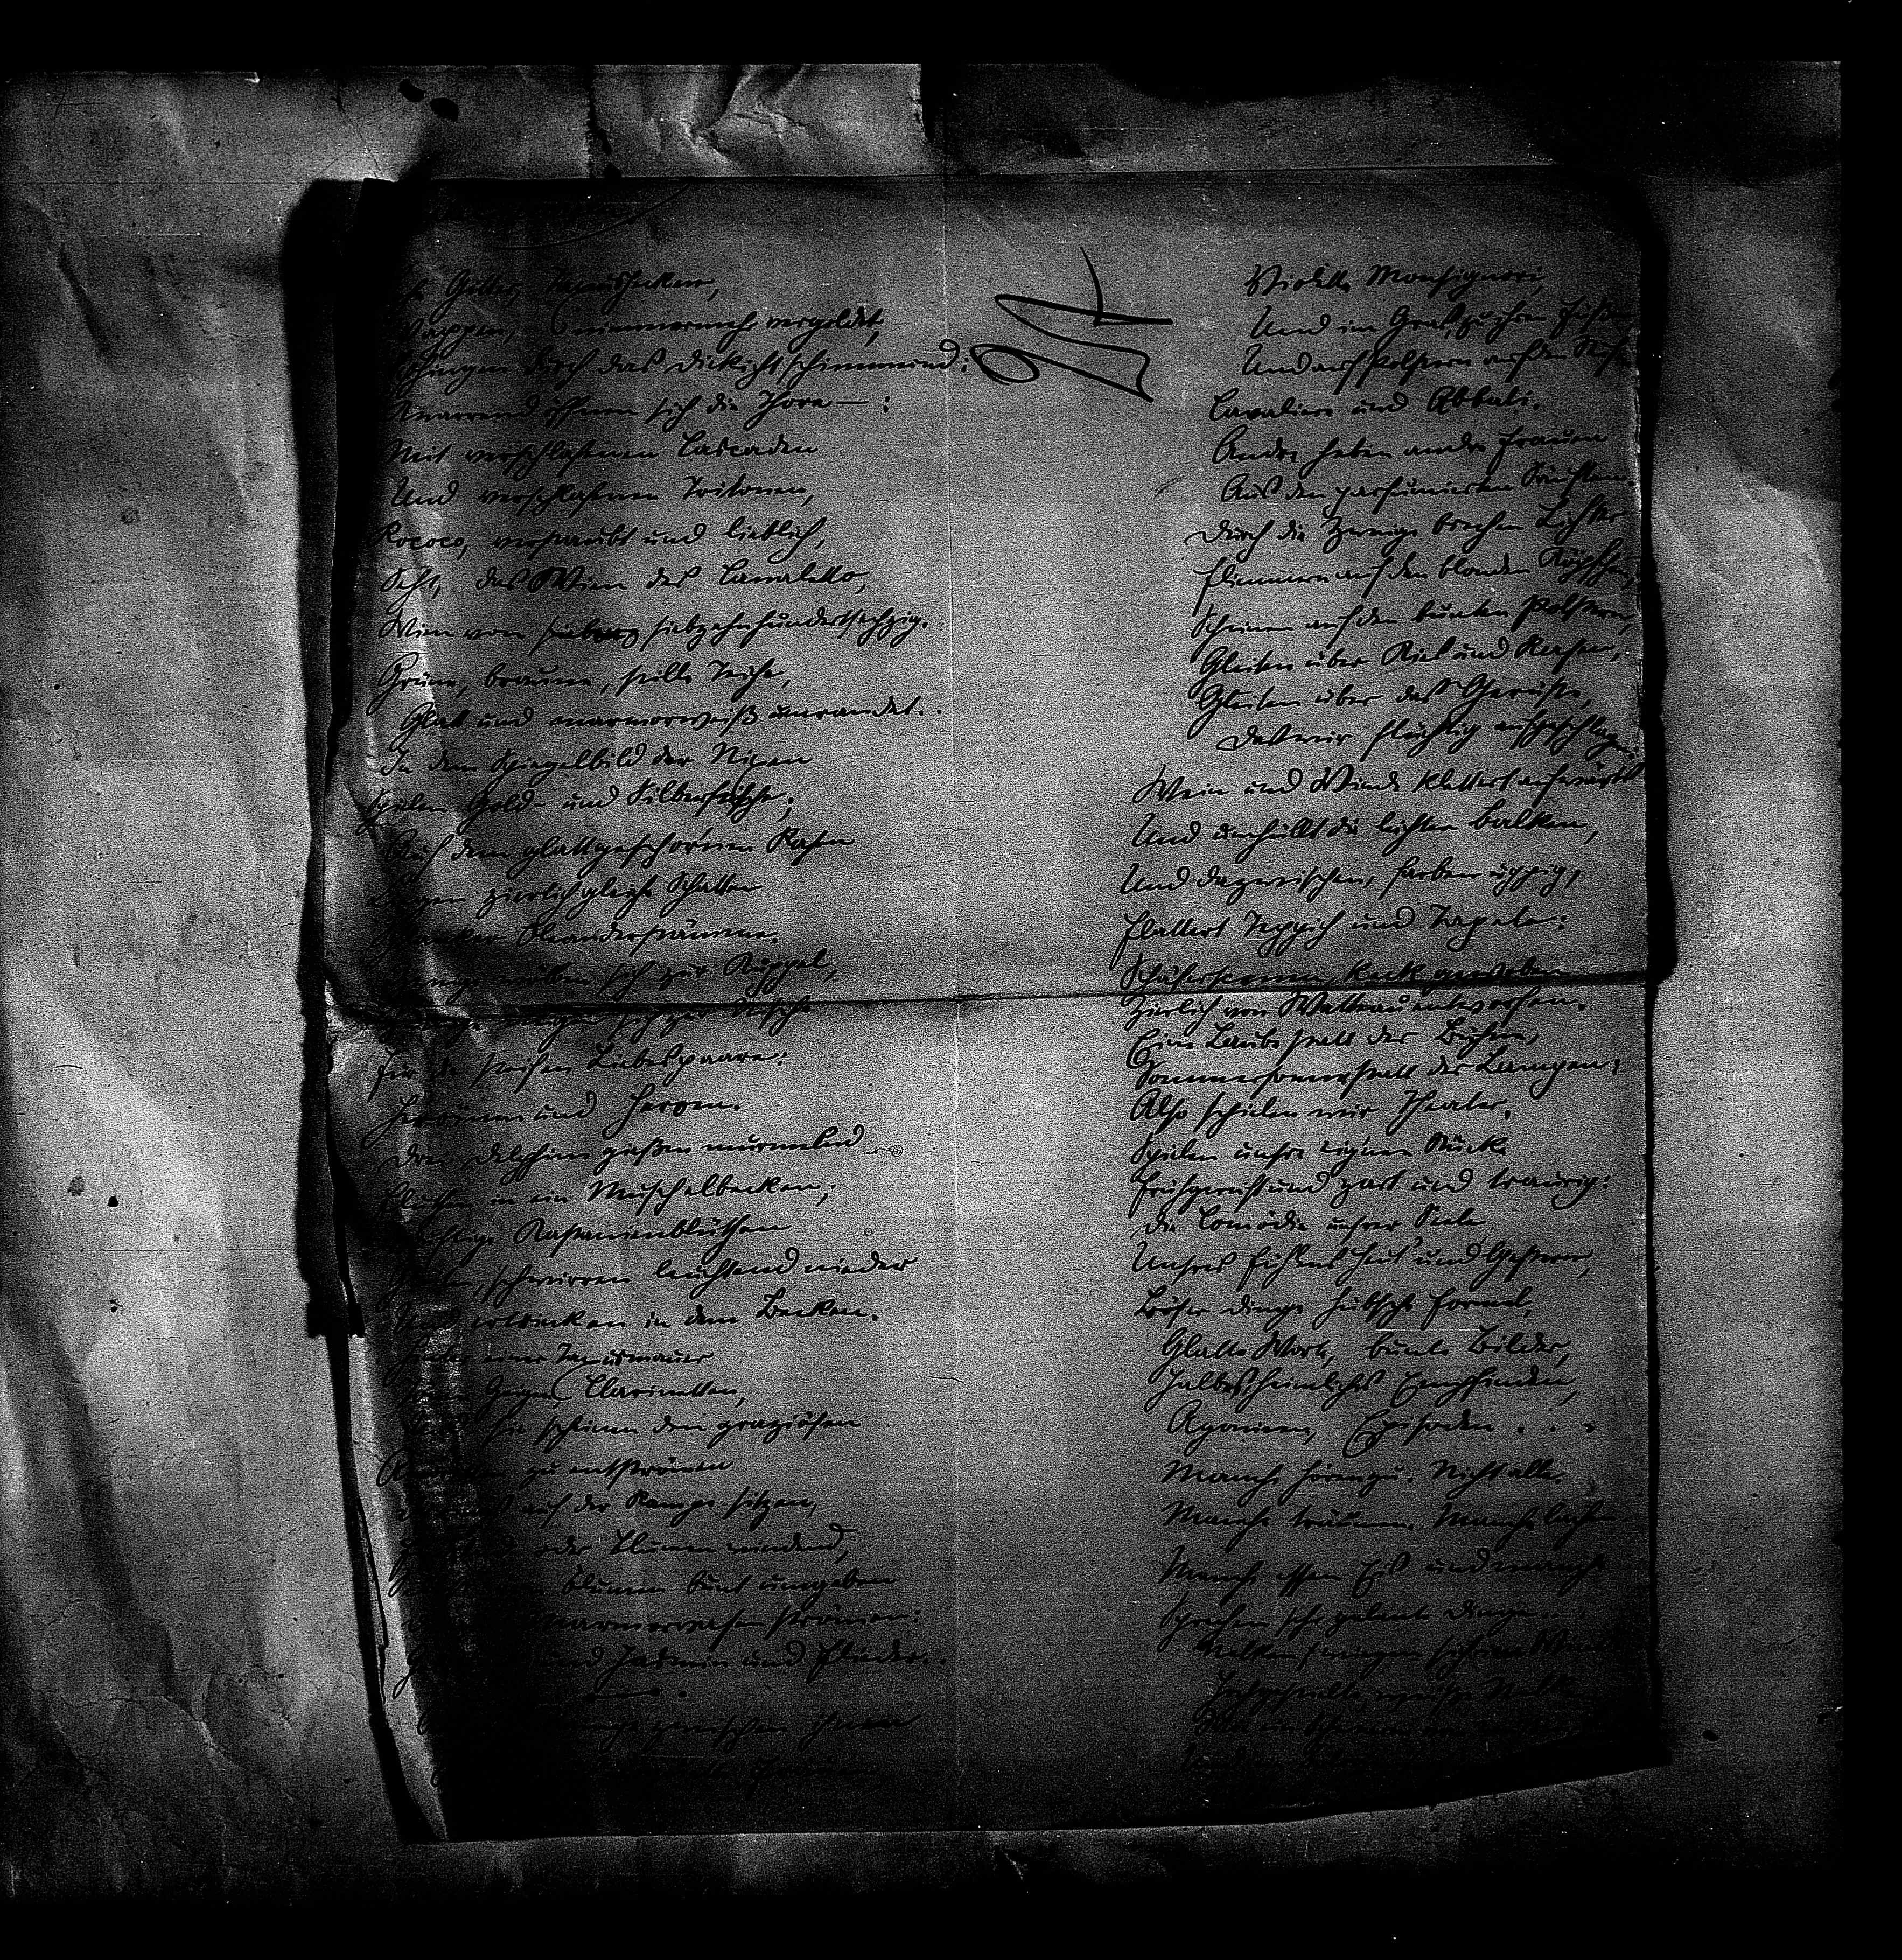 Gitter, Taxushecken,
Wappen, nimmermehr vergoldet,
durch das Dickicht schimmernd:
Knarrend öffnen sich die Thore — :
Mit verschlafenen Cascaden
Und verschlafnen Tritonen,
Rococo, verstaubt und lieblich,
Seht, das Wien des Canaletto,
Wien von siebzehnhundertsechzig.
Grüne, braune, stille Teiche,
Glatt und marmorweiß umrandet..
In dem Spiegelbild der Nixen
Spielen Gold- und Silberfische;
Auf dem glattgeschor'nen Rasen
Liegen zierlich gleiche Schatten
Schlanker Oleanderstämme.
Zweige wölben sich zur Kuppel,
Zweige neigen sich zur Nische
Für die steifen Liebespaare:
Heroinen und Heroen.
Drei Delphine gießen murmelnd
Fluthen in ein Muschelbecken;
Duftige Kastanienblüthen
Gleiten, schwirren leuchtend nieder
Und ertrinken in dem Becken.
Hinter einer Taxusmauer
Tönen Geigen, Clarinetten,
sie scheinen den graziösen
Amoretten zu entströmen
auf der Rampe sitzen,
oder Blumen windend,
Blumen bunt umgeben
Marmorvasen strömen:
und Jasmin und Flieder..
zwischen ihnen
Violette Monsignori,
Und im Gras, zu ihren Füßen
Und auf Polstern auf den Stufen
Cavaliere und Abbati.
Andre heben andre Frauen
Aus den parfümierten Sänften
Durch die Zweige brechen Lichter
Flimmern auf den blonden Köpfchen,
Scheinen auf den bunten Polstern,
Gleiten über Kies und Rasen,
Gleiten über das Gerüste,
Das wir flüchtig aufgeschlagen:
Wein und Winde klettert aufwärts
Und umhüllt die lichten Balken,
Und dazwischen, farbenüppig,
Flattert Teppich und Tapete:
Schäferscenen, keck gewoben
Zierlich von Watteau entworfen.
Eine Laube statt der Bühne,
Sommersonne statt der Lampen:
Also spielen wir Theater,
Spielen unsre eignen Stücke
Frühgereift und zart und traurig:
Die Comödie unsrer Seele
Unsres Fühlens Heut' und Gestern,
Böser Dinge hübsche Formel,
Glatte Worte, bunte Bilder,
Halbes, heimliches Empfinden,
Agonieen, Episoden . . .
Manche hören zu. Nicht alle.
Manche träumen. Manche lachen
Manche essen Eis und manche
Sprechen sehr galante Dinge..
Nelken wiegen sich im Winde
Hochgestielte, weiße Nelken